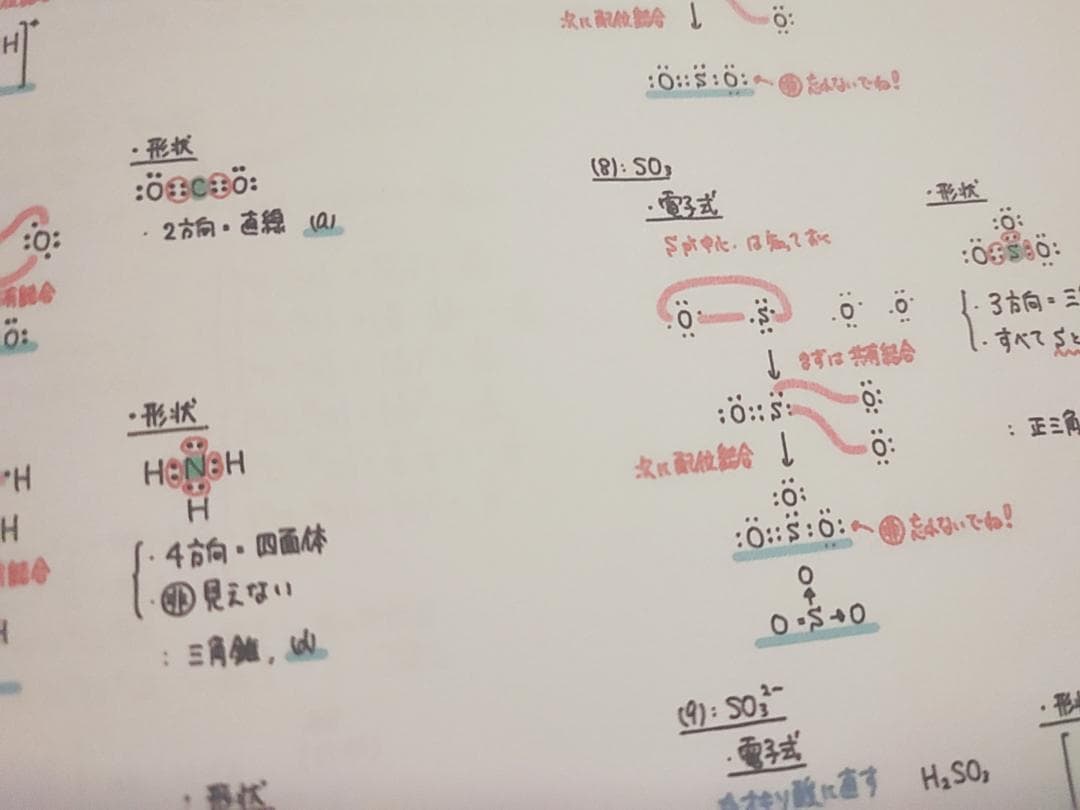 H]⁺
・形状
:Ö::C::Ö:
・2方向=直線 (a)
:Ö:
有結合
Ö:
・形状
H:N:H
H
・4方向=四面体
・非 見えない
:三角錐, (d)
・H
H
有結合
H
・形状
次に配位結合 ↓ :Ö:
:Ö::S̈:Ö: ← 非 忘れないでね!
(8): SO₃
・電子式
Sが中心.は知っておく
·Ö· ·S̈· ·Ö· ·Ö·
↓ まずは共有結合
:Ö::S̈: :Ö:
:Ö:
次に配位結合 ↓
:Ö:
:Ö::S̈:Ö: ← 非 忘れないでね!
O
↑
O=S→O
・形状
:Ö:
:Ö::S:Ö:
・3方向=三
・すべてSと
:正三角
(9): SO₃²⁻
・電子式
オキソ酸に直す H₂SO₃
・形状